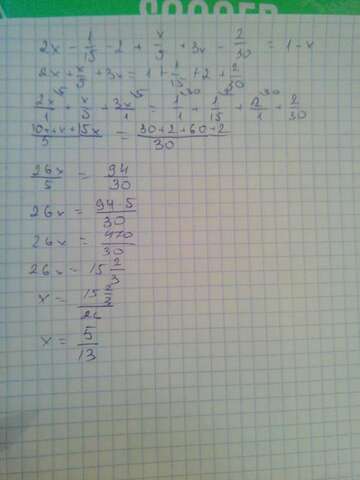 2x - 1/15 - 2 + x/5 + 3x - 2/30 = 1 - x
2x + x/5 + 3x = 1 + 1/15 + 2 + 2/30
2x/1 + x/5 + 3x/1 = 1/1 + 1/15 + 2/1 + 2/30
10x+x+15x/5 = 30+2+60+2/30
26x/5 = 94/30
26x = 94·5/30
26x = 470/30
26x = 15 2/3
x = 15 2/3/26
x = 5/13